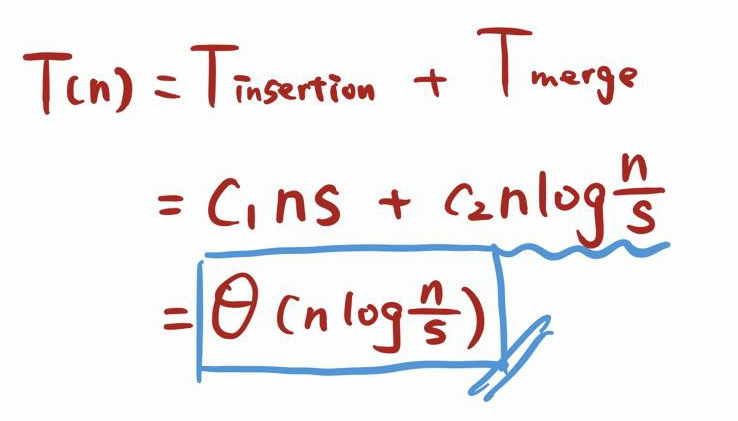 T(n) = T insertion + T merge
= C₁ns + C₂nlog n/s
= θ(n log n/s)